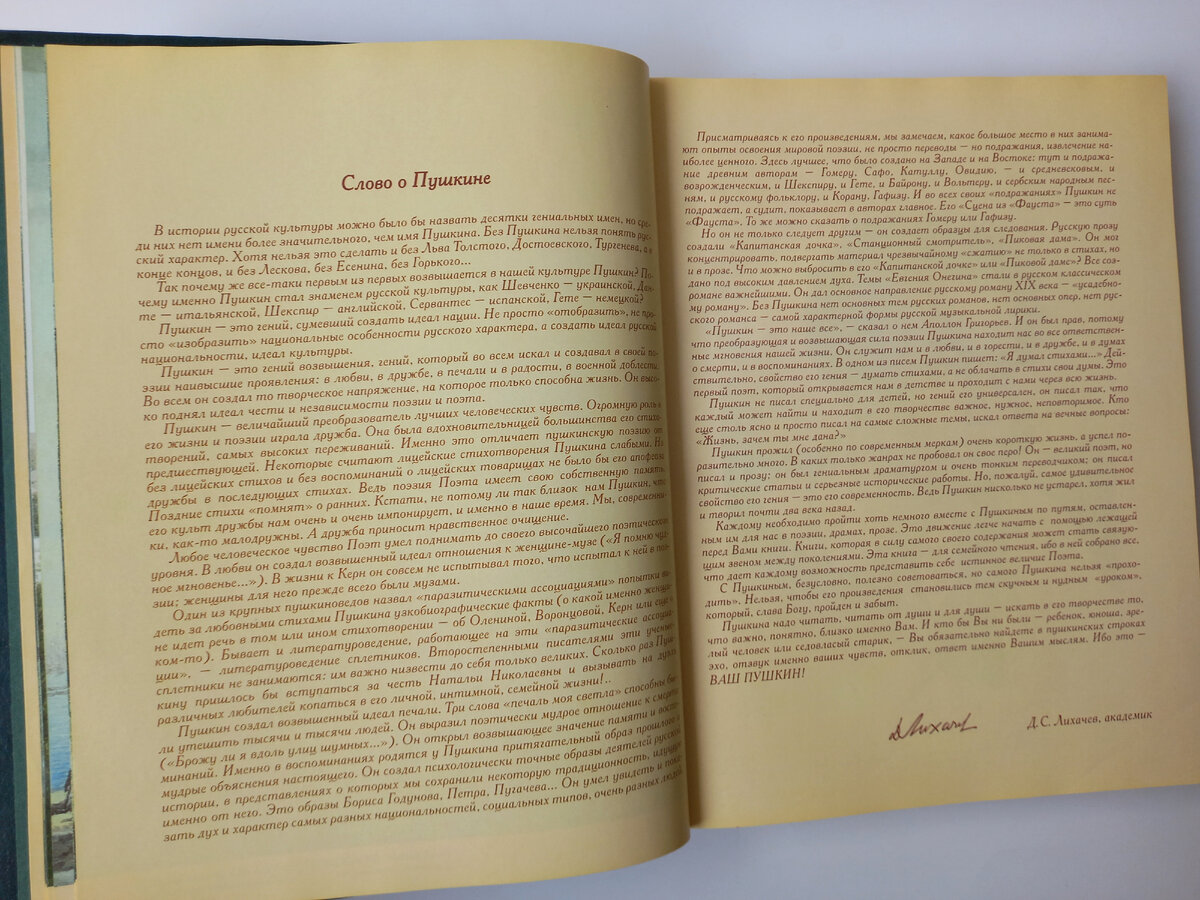 Слово о Пушкине
В истории русской культуры можно было бы назвать десятки гениальных имен, но сре-
ди них нет имени более значительного, чем имя Пушкина. Без Пушкина нельзя понять рус-
ский характер. Хотя нельзя это сделать и без Льва Толстого, Достоевского, Тургенева, а в
конце концов, и без Лескова, без Есенина, без Горького...
Так почему же все-таки первым из первых возвышается в нашей культуре Пушкин? По-
чему именно Пушкин стал знаменем русской культуры, как Шевченко – украинской, Дан-
те – итальянской, Шекспир – английской, Сервантес – испанской, Гете – немецкой?
Пушкин – это гений, сумевший создать идеал нации. Не просто «отобразить», не про-
сто «изобразить» национальные особенности русского характера, а создать идеал русской
национальности, идеал культуры.
Пушкин – это гений возвышения, гений, который во всем искал и создавал в своей по-
эзии наивысшие проявления: в любви, в дружбе, в печали и в радости, в военной доблести.
Во всем он создал то творческое напряжение, на которое только способна жизнь. Он высо-
ко поднял идеал чести и независимости поэзии и поэта.
Пушкин – величайший преобразователь лучших человеческих чувств. Огромную роль в
его жизни и поэзии играла дружба. Она была вдохновительницей большинства его стихо-
творений, самых высоких переживаний. Именно это отличает пушкинскую поэзию от
предшествующей. Некоторые считают лицейские стихотворения Пушкина слабыми. Но
без лицейских стихов и без воспоминаний о лицейских товарищах не было бы его апофеоза
дружбы в последующих стихах. Ведь поэзия Поэта имеет свою собственную память.
Поздние стихи «помнят» о ранних. Кстати, не потому ли так близок нам Пушкин, что
его культ дружбы нам очень и очень импонирует, и именно в наше время. Мы, современни-
ки, как-то малодружны. А дружба приносит нравственное очищение.
Любое человеческое чувство Поэт умел поднимать до своего высочайшего поэтического
уровня. В любви он создал возвышенный идеал отношения к женщине-музе («Я помню чуд-
ное мгновенье...»). В жизни к Керн он совсем не испытывал того, что испытал к ней в поэ-
зии; женщины для него прежде всего были музами.
Один из крупных пушкиноведов назвал «паразитическими ассоциациями» попытки ви-
деть за любовными стихами Пушкина узкобиографические факты (о какой именно женщи-
не идет речь в том или ином стихотворении – об Олениной, Воронцовой, Керн или еще о
ком-то). Бывает и литературоведение, работающее на эти «паразитические ассоциа-
ции», – литературоведение сплетников. Второстепенными писателями эти ученые-
сплетники не занимаются: им важно низвести до себя только великих. Сколько раз Пуш-
кину пришлось бы вступаться за честь Натальи Николаевны и вызывать на дуэль
различных любителей копаться в его личной, интимной, семейной жизни!..
Пушкин создал возвышенный идеал печали. Три слова «печаль моя светла» способны бы-
ли утешить тысячи и тысячи людей. Он выразил поэтически мудрое отношение к смерти
(«Брожу ли я вдоль улиц шумных...»). Он открыл возвышающее значение памяти и воспо-
минаний. Именно в воспоминаниях родятся у Пушкина притягательный образ прошлого и
мудрые объяснения настоящего. Он создал психологически точные образы деятелей русской
истории, в представлениях о которых мы сохранили некоторую традиционность, идущую
именно от него. Это образы Бориса Годунова, Петра, Пугачева... Он умел увидеть и пока-
зать дух и характер самых разных национальностей, социальных типов, очень разных людей.
Присматриваясь к его произведениям, мы замечаем, какое большое место в них занима-
ют опыты освоения мировой поэзии, не просто переводы – но подражания, извлечение на-
иболее ценного. Здесь лучшее, что было создано на Западе и на Востоке: тут и подража-
ние древним авторам – Гомеру, Сафо, Катуллу, Овидию, – и средневековым, и
возрожденческим, и Шекспиру, и Гете, и Байрону, и Вольтеру, и сербским народным пес-
ням, и русскому фольклору, и Корану, Гафизу. И во всех своих «подражаниях» Пушкин не
подражает, а судит, показывает в авторах главное. Его «Сцена из «Фауста» – это суть
«Фауста». То же можно сказать о подражаниях Гомеру или Гафизу.
Но он не только следует другим – он создает образцы для следования. Русскую прозу
создали «Капитанская дочка», «Станционный смотритель», «Пиковая дама». Он мог
концентрировать, подвергать материал чрезвычайному «сжатию» не только в стихах, но
и в прозе. Что можно выбросить в его «Капитанской дочке» или «Пиковой даме»? Все соз-
дано под высоким давлением духа. Темы «Евгения Онегина» стали в русском классическом
романе важнейшими. Он дал основное направление русскому роману XIX века – «усадебно-
му роману». Без Пушкина нет основных тем русских романов, нет основных опер, нет рус-
ского романса – самой характерной формы русской музыкальной лирики.
«Пушкин – это наше все», – сказал о нем Аполлон Григорьев. И он был прав, потому
что преобразующая и возвышающая сила поэзии Пушкина находит нас во все ответствен-
ные мгновения нашей жизни. Он служит нам и в любви, и в горести, и в дружбе, и в думах
о смерти, и в воспоминаниях. В одном из писем Пушкин пишет: «Я думал стихами...» Дей-
ствительно, свойство его гения – думать стихами, а не облачать в стихи свои думы. Это
первый поэт, который открывается нам в детстве и проходит с нами через всю жизнь.
Пушкин не писал специально для детей, но гений его универсален, он писал так, что
каждый может найти и находит в его творчестве важное, нужное, неповторимое. Кто
еще столь ясно и просто писал на самые сложные темы, искал ответа на вечные вопросы:
«Жизнь, зачем ты мне дана?»
Пушкин прожил (особенно по современным меркам) очень короткую жизнь, а успел по-
разительно много. В каких только жанрах не пробовал он свое перо! Он – великий поэт, но
писал и прозу; он был гениальным драматургом и очень тонким переводчиком; он писал
критические статьи и серьезные исторические работы. Но, пожалуй, самое удивительное
свойство его гения – это его современность. Ведь Пушкин нисколько не устарел, хотя жил
и творил почти два века назад.
Каждому необходимо пройти хоть немного вместе с Пушкиным по путям, оставлен-
ным им для нас в поэзии, драмах, прозе. Это движение легче начать с помощью лежащей
перед Вами книги. Книги, которая в силу самого своего содержания может стать связую-
щим звеном между поколениями. Эта книга – для семейного чтения, ибо в ней собрано все,
что дает каждому возможность представить себе истинное величие Поэта.
С Пушкиным, безусловно, полезно советоваться, но самого Пушкина нельзя «прохо-
дить». Нельзя, чтобы его произведения становились тем скучным и нудным «уроком»,
который, слава Богу, пройден и забыт.
Пушкина надо читать, читать от души и для души – искать в его творчестве то,
что важно, понятно, близко именно Вам. И кто бы Вы ни были – ребенок, юноша, зре-
лый человек или седовласый старик, – Вы обязательно найдете в пушкинских строках
эхо, отзвук именно ваших чувств, отклик, ответ именно Вашим мыслям. Ибо это –
ВАШ ПУШКИН!
Д Лихачев
Д.С. Лихачев, академик